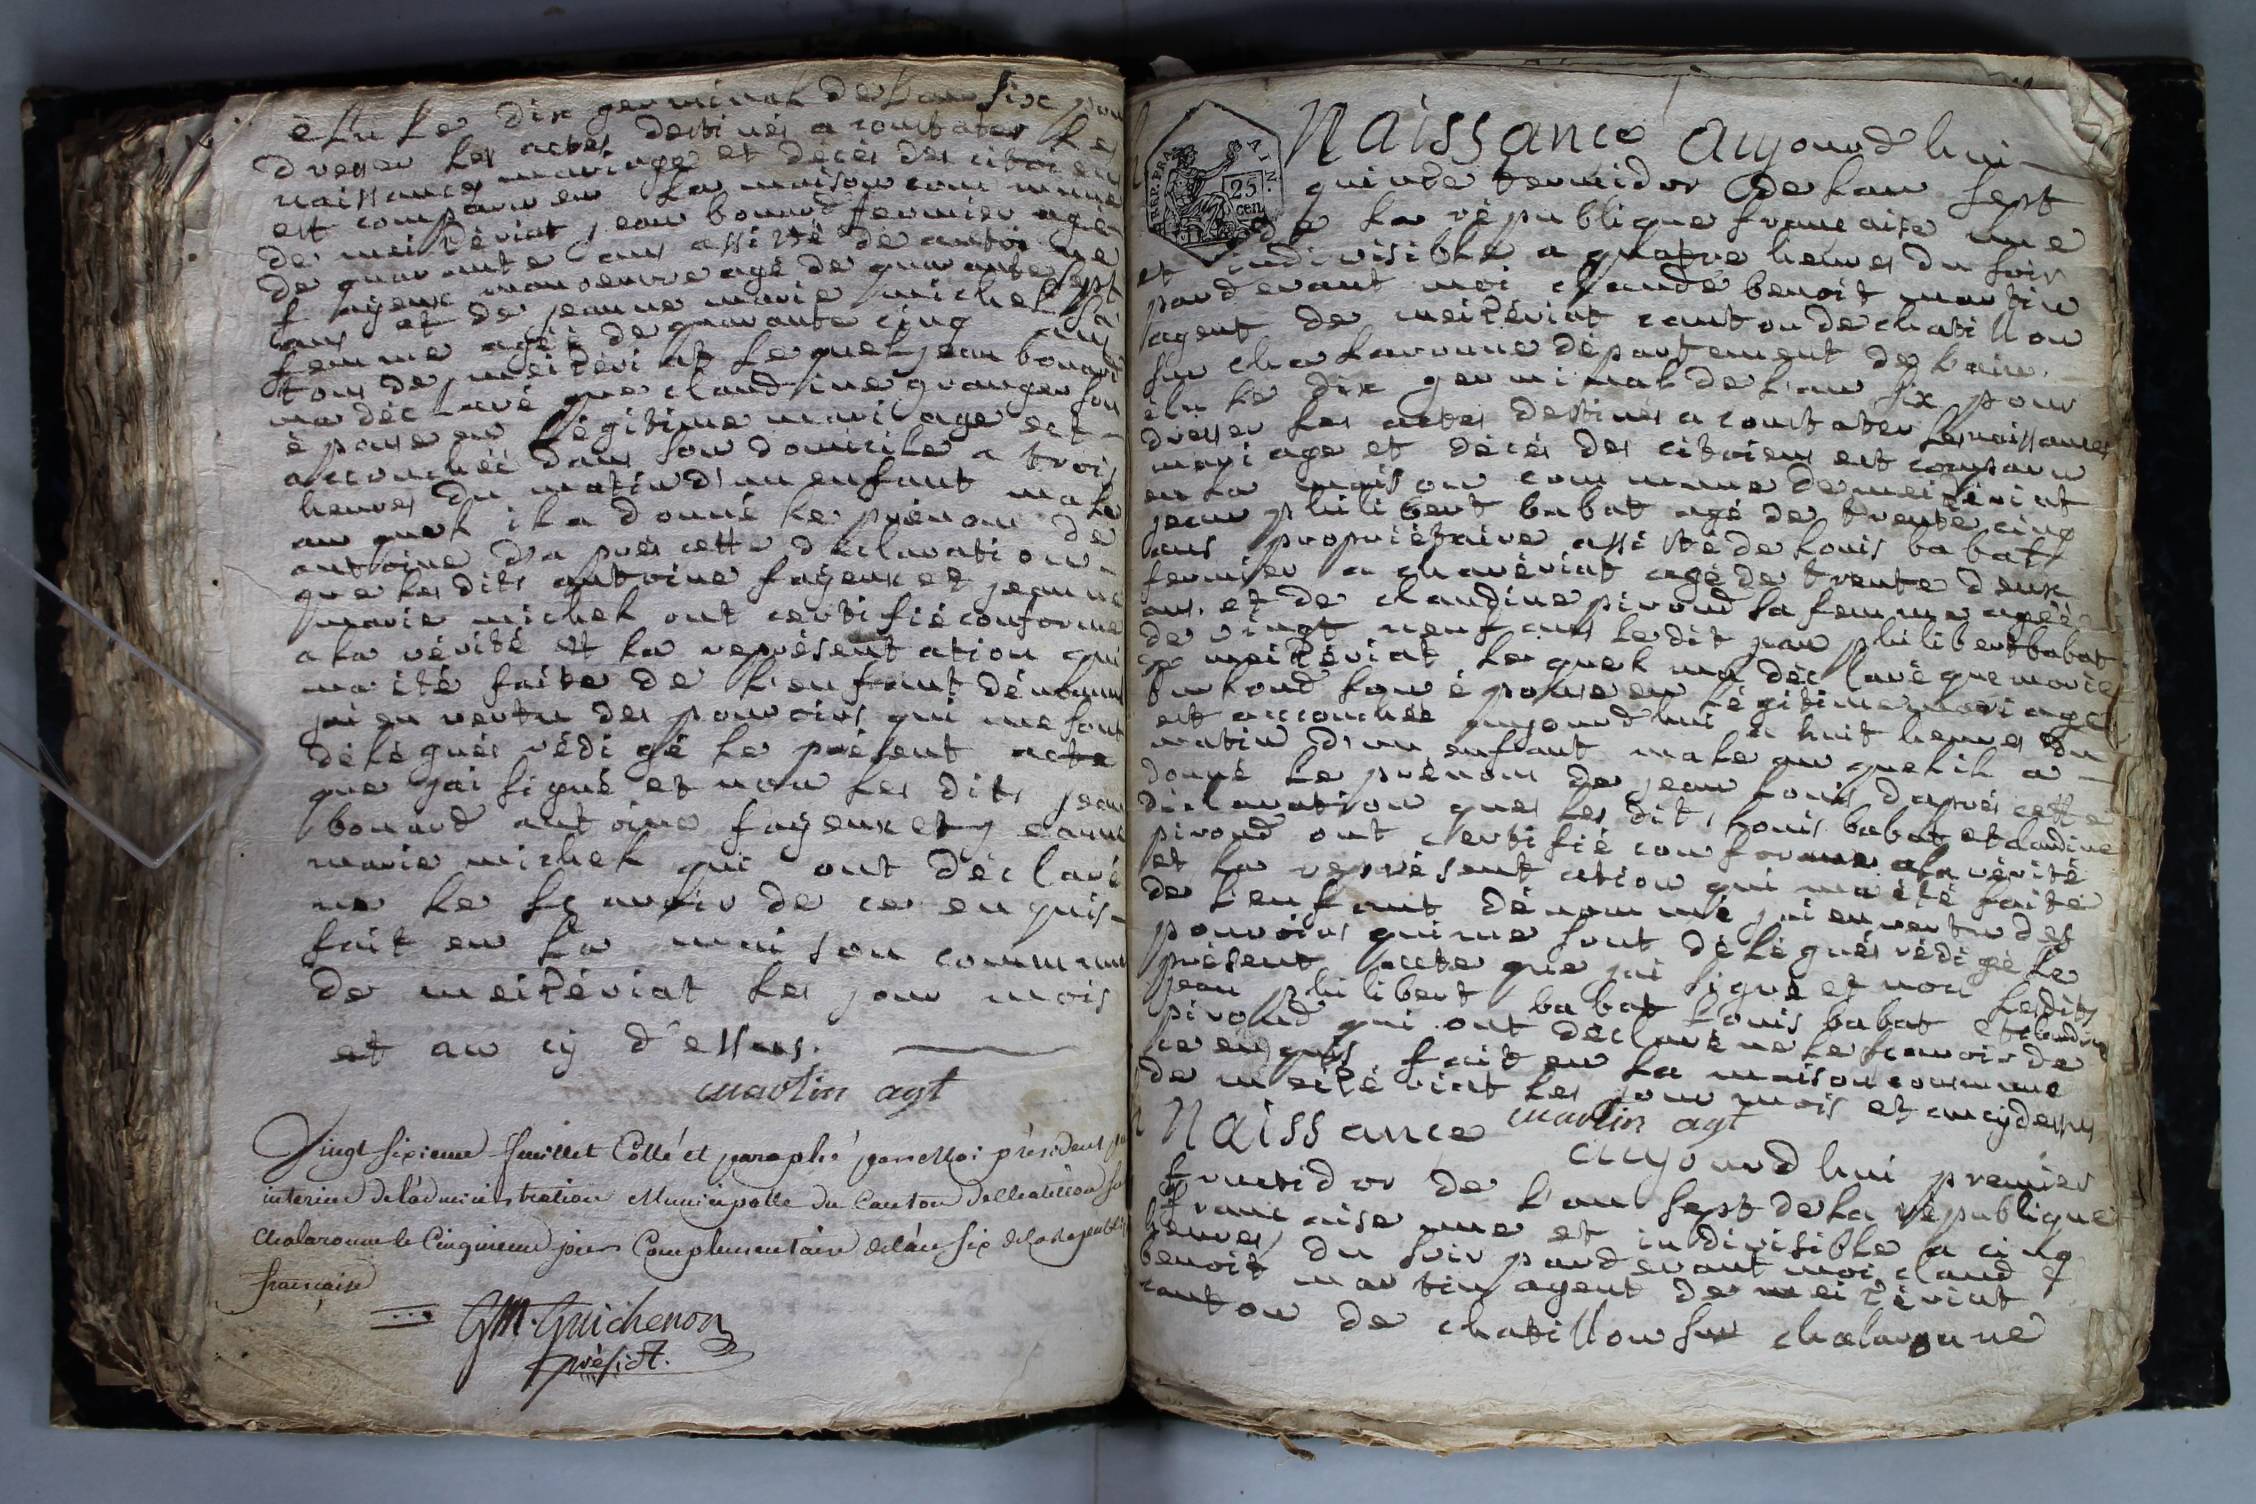 élu le dix germinal de lan six pour
dresser les actes destinés a constater les
naissances mariage et décés des citoiens
est comparu en la maison commune
de meizériat jean bonard fermier agé
de quarante ans assisté de antoine
fayeux manoeuvre agé de quarante sept
ans et de jeanne marie michel sa
femme agéé de quarante cinq ans
tous de meizériat lequel jean bonard
ma déclaré que claudine granger son
épouse en légitime mariage est
accouchéé dans son domicile a trois
heures du matin d'un enfant male
au quel il a donné le prénom de
antoine d'a prés cette déclaration
que les dits antoine fayeux et jeanne
marie michel ont certifié conforme
a la vérité et la représentation qui
ma été faite de l'enfant dénommé
jai en vertu des pouvoirs qui me sont
délégués rédigé le présent acte
que jai signé et non les dits jean
bonard antoine fayeux et jeanne
marie michel qui ont déclaré
ne le scavoir de ce enquis
fait en la maison commune
de meizériat les jour mois
et an cy d'essus.
martin agt
Vingt sixieme feuillet Cotté et paraphé par Moi président par
interim de l'administration Municipalle du Canton de Chatillon sur
Chalaronne le Cinquieme jour Complementaire de l'an six de la Republique
francaise
GM. Guichenon
présidt.
REP. FRA. AIN.
25
cen.
Naissance aujourd'hui
quinze termidor de lan sept
de la république francaise une
et indivisible a quatre heures du soir
pardevant moi claude benoit martin
agent de meizériat canton de chatillon
sur chalaronne département de l'ain.
élu le dix germinal de l'an six pour
dresser les actes destinés a constater les naissances
mariage et décés des citoiens est comparu
en la maison commune de meizériat
jean philibert babat agé de trente cinq
ans propriétaire assisté de louis babat
fermier a chavériat agé de trente deux
ans. et de claudine piroud sa femme agéé
de vingt neuf ans le dit jean philibert babat
de meizériat lequel ma déclaré que marie
son épouse en légitime mariage
est accouchéé aujourd'hui a huit heures du
matin d'un enfant male au quel il a
donné le prénom de jean louis daprés cette
déclaration que les dits louis babat et claudine
piroud ont certifié conforme a la vérité
et la représentation qui ma été faite
de l'enfant dénommé jai en vertu des
pouvoirs qui me sont délégués rédigé le
présent acte que jai signé et non lesdits
jean philibert babat louis babat et claudine
piroud qui ont déclaré ne le scavoir de
ce enquis fait en la maison commune
de meizériat les jour mois et an cy dessus
martin agt
Naissance aujourd'hui premier
fructidor de l'an sept de la république
francaise une et indivisible a cinq
heures du soir pardevant moi claude
benoit martin agent de meizériat
canton de chatillon sur chalaronne